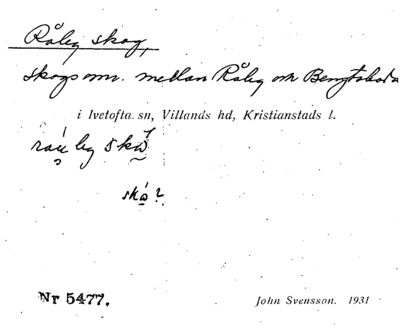 Råby skog,
skogsomr. mellan Råby och Bengtsboda
i Ivetofta sn, Villands hd, Kristianstads l.
skå?
Nr 5477.
John Svensson. 1931